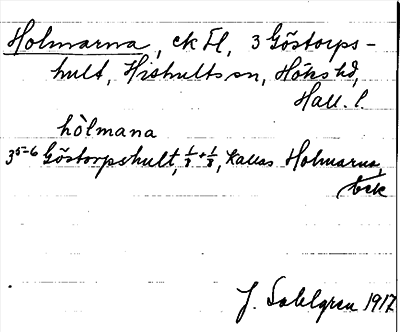 Holmarna, ck Fl, 3 Göstorps-
hult, Hishults sn, Höks hd,
Hall. l.
hòlmana
3⁵⁻⁶ Göstorpshult, 1/8 + 1/8, kallas Holmarna,
J. Sahlgren 1917